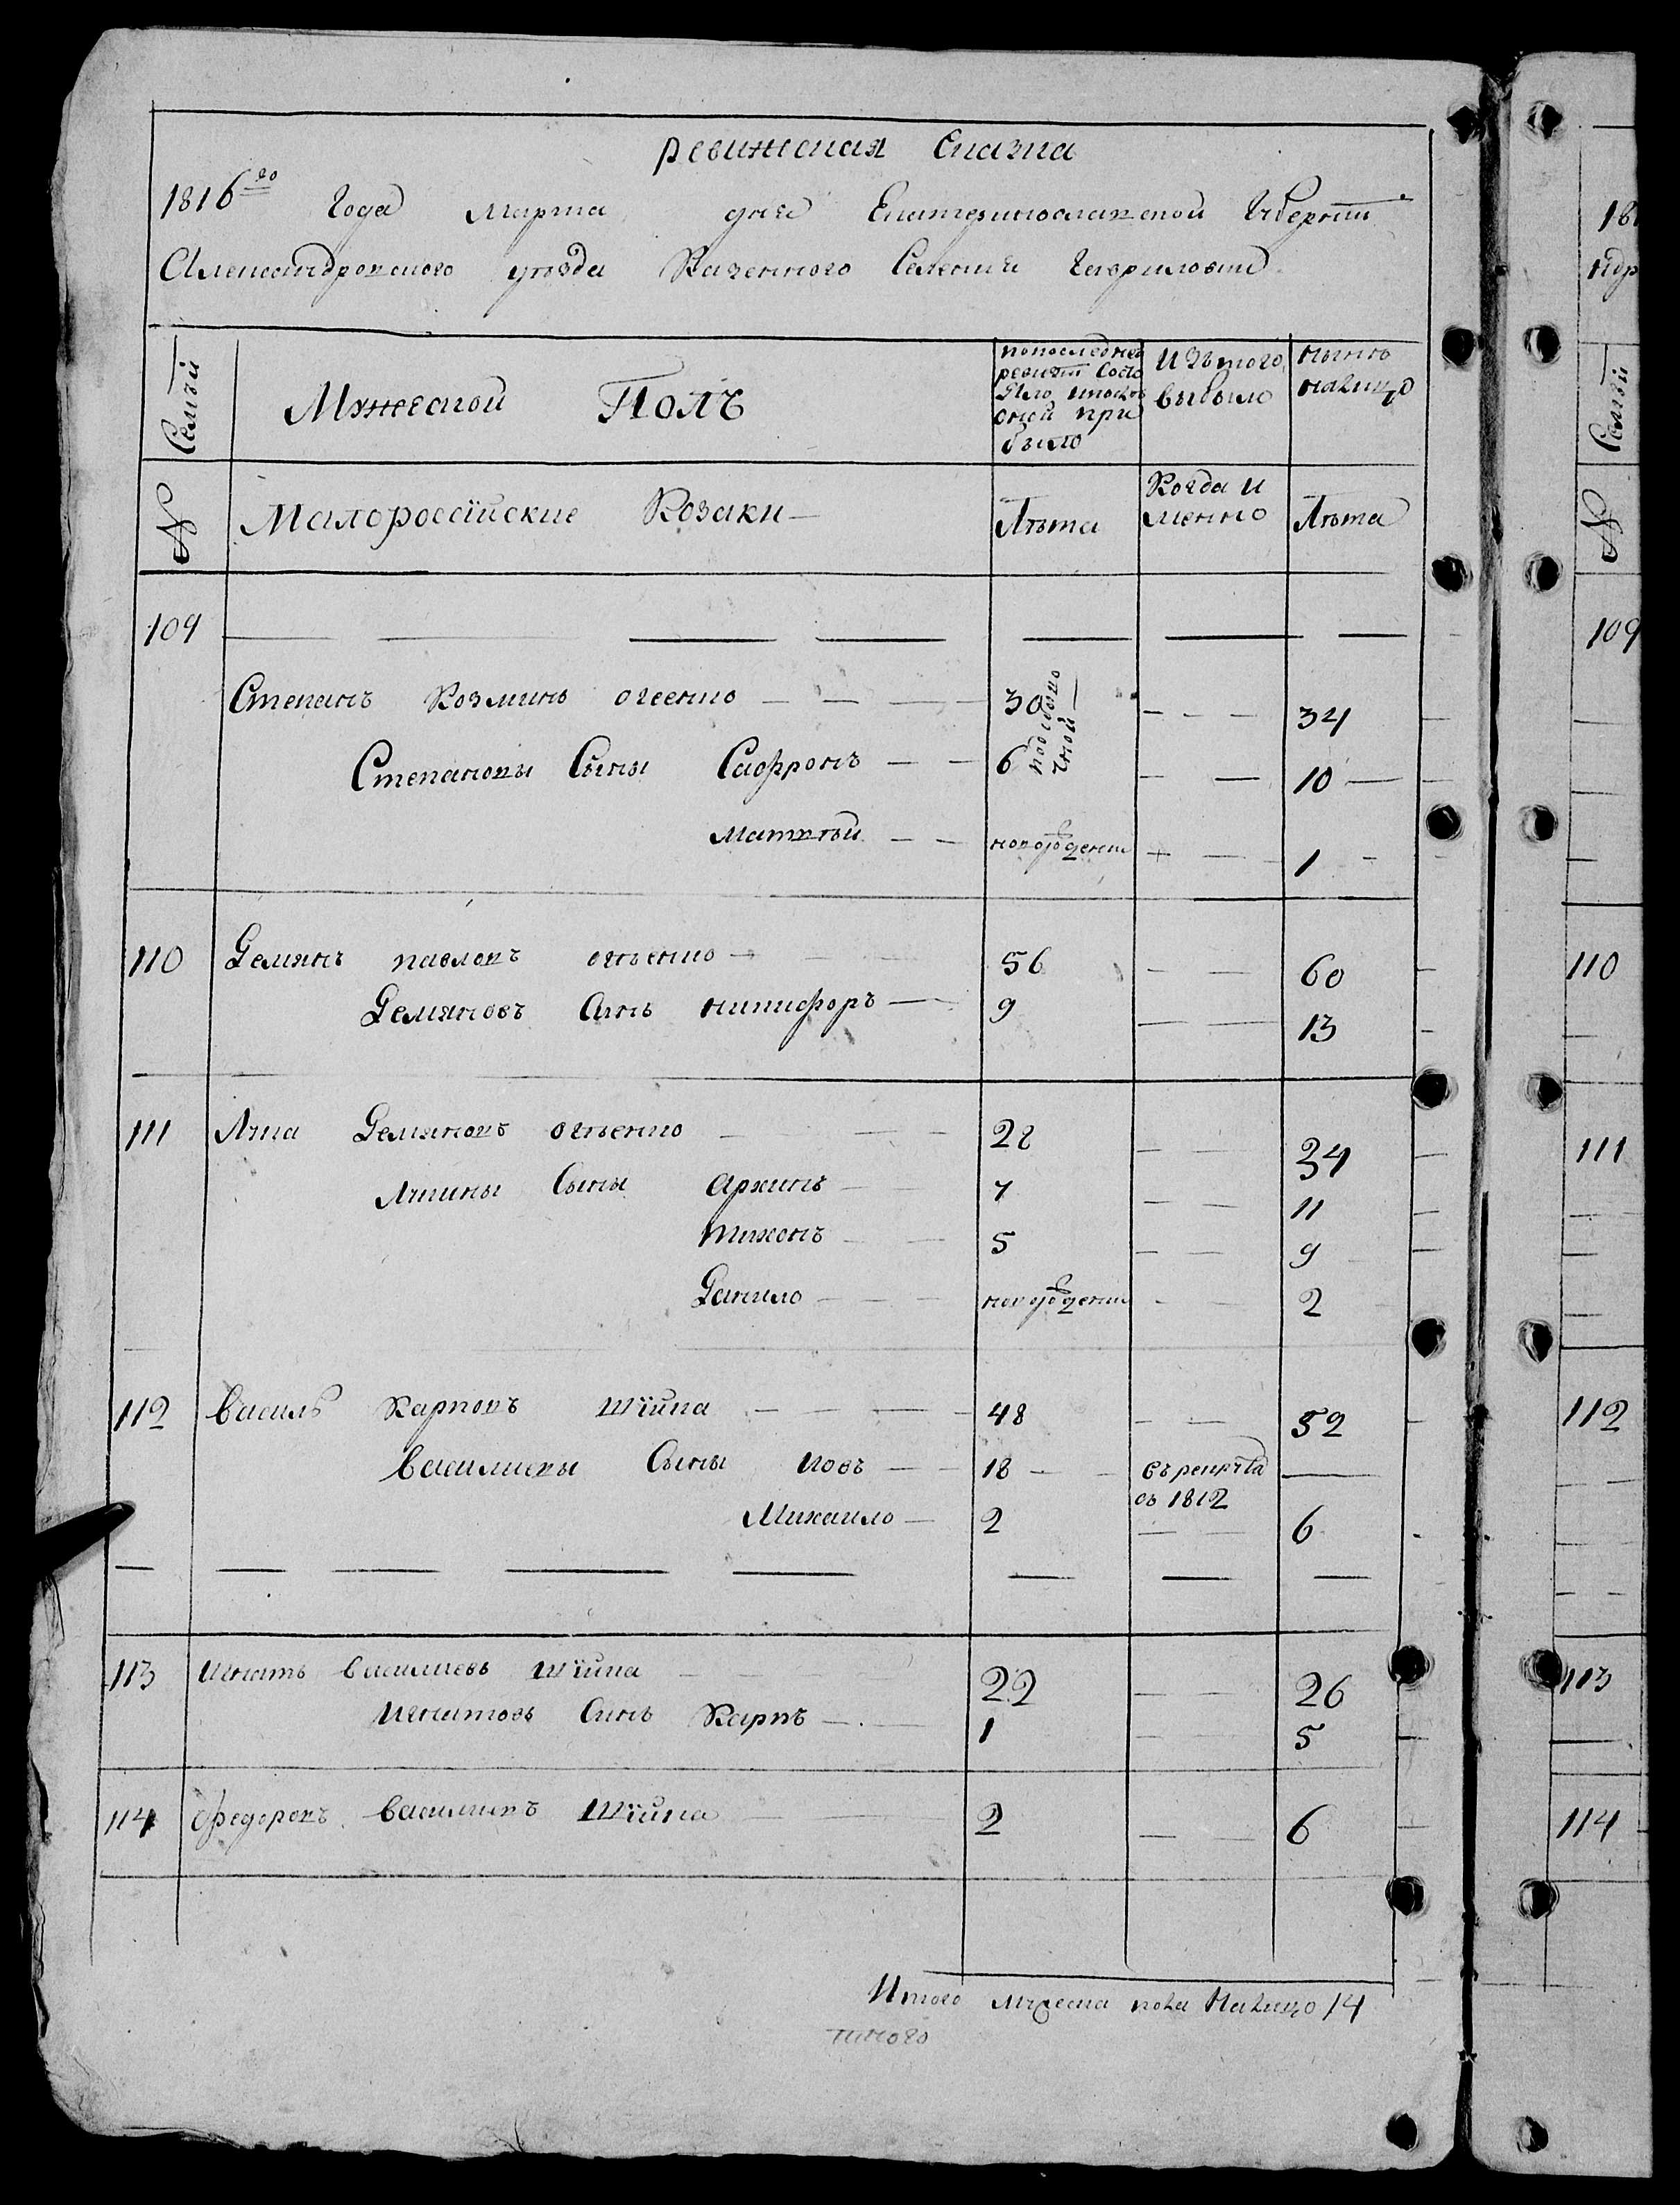 ревижская Сказка
1816го года марта дня Екатеринославской Губернии
Александровского уезда Казенного Селения Гавриловки
Семьи
Мужеской Полъ
попоследней ревизіи Состояло и после оной прибыло
Изътого выбыло
ныне налицо
№
Малороссійские Козаки
Лѣта
Когда имянно
Лѣта
109
Степанъ Козминъ 30 34
Степановы Сыны Сафронъ 6 10
Матвѣй новорожденны 1
110 Демянъ павловъ 56 60
Демяновъ Сынъ никифоръ 9 13
111 Лука Демяновъ 28 34
Лукины Сыны Архипъ 7 11
Тихонъ 5 9
Данило новорожденны 2
112 Василь Карповъ Шійка 48 52
Василиевы Сыны иовъ 18 въ рекруты въ 1812
Михаило 2 6
113 Игнатъ василиевъ Шійка 22 26
Игнатовъ Сынъ Карпъ 1 5
114 Федоровъ василиевъ Шійка 2 6
Итого мужеска пола Налицо 14
109
110
111
112
113
114